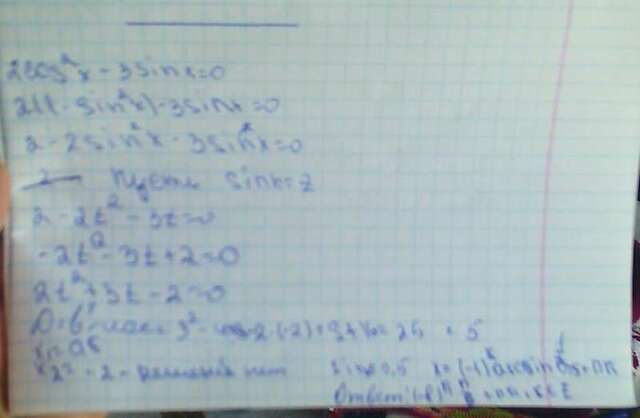 2cos²x - 3sinx=0
2(1-sin²x)-3sinx=0
2-2sin²x-3sin²x=0
Пусть sinx=t
2-2t²-3t=0
-2t²-3t+2=0
2t²+3t-2=0
D=b²-4ac=3²-4·2·(-2)=9+16=25 = 5
x₁=0,5
x₂=-2-решений нет sinx=0,5 x=(-1)ᵏarcsin 0,5+πn
Ответ: